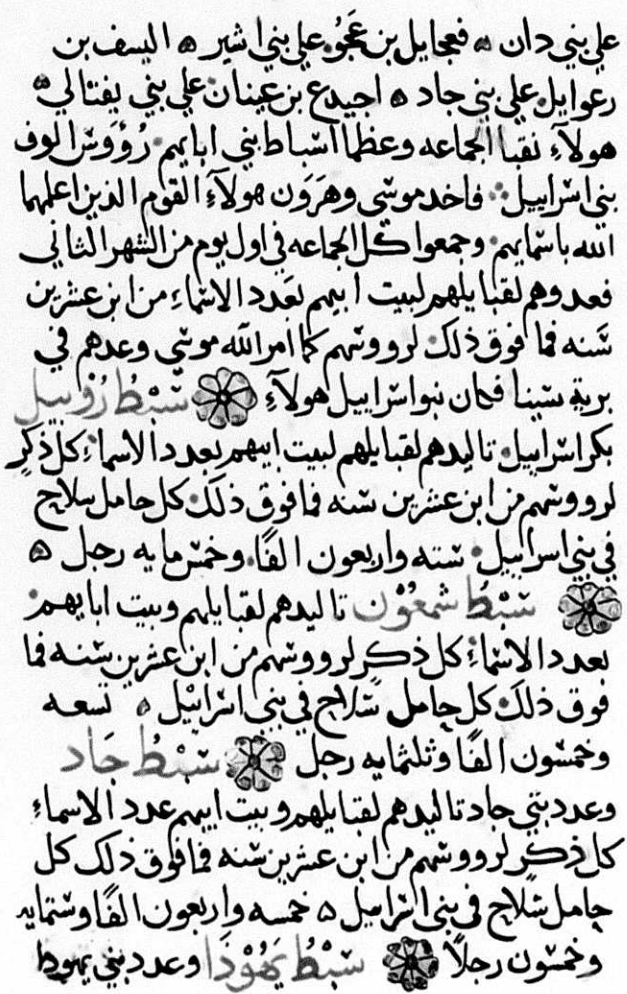 علي بني دان ۞ فعجايل بن عجو علي بني اشير ۞ اليسف بن
رعوايل علي بني جاد ۞ اجيدع بن عينان علي بني يفتالي ۞
هولآءِ نقبا الجماعه وعظما اسباط بني ابايهم رُؤوس الوف
بني اسراييل فاخد موسي وهرون هولآءِ القوم الذين اعلمهما
الله باسمايهم وجمعوا كل الجماعه في اول يوم من الشهر الثاني
فعدوهم لقبايلهم لبيت ابيهم بعدد الاسماءِ من ابن عشرين
سنه فما فوق ذلك لرووسهم كما امر الله موسي وعدهم في
برية سينا فكان بنوا سراييل هولآءِ سبط روبيل
بكر اسراييل تاليدهم لقبايلهم لبيت ابيهم بعدد الاسماءِ كل ذكرٍ
لرووسهم من ابن عشرين سنه فما فوق ذلك كل حامل سلاح
في بني اسراييل سته واربعون الفًا وخمس مايه رجل ۞
سبط شمعون تاليدهم لقبايلهم وبيت ابايهم
بعدد الاسماءِ كل ذكرٍ لرووسهم من ابن عشرين سنه فما
فوق ذلك كل حامل سلاح في بني اسراييل ۞ تسعه
وخمسون الفًا وثلثمايه رجل سبط جاد
وعدد بني جاد تاليدهم لقبايلهم وبيت ابيهم عدد الاسماءِ
كل ذكرٍ لرووسهم من ابن عشرين سنه فما فوق ذلك كل
حامل سلاح في بني اسراييل ۞ خمسه واربعون الفًا وستمايه
وخمسون رجلاً سبط يهوذا وعدد بني يهوذا